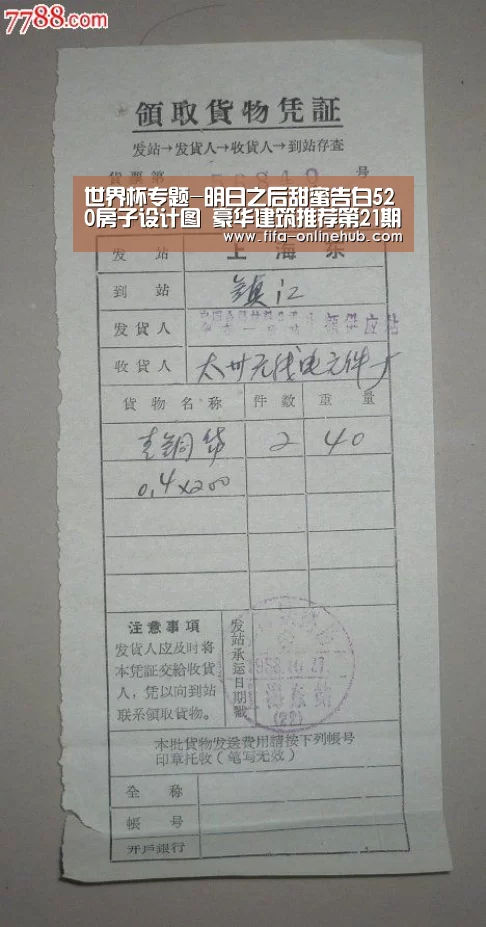 7788.com
領取貨物凭証
发站→发貨人→收貨人→到站存査
貨票第 号
世界杯专题-明日之后甜蜜告白52
0房子设计图 豪华建筑推荐第21期
www.fifa-onlinehub.com
发站 上海东
到站 镇江
发貨人 供应站
收貨人 太州无线电元件厂
貨物名称 件数 重量
青铜 2 40
0.4×200
注意事項
发貨人应及时将
本凭証交給收貨
人，凭以向到站
联系領取貨物。
发站承运日期戳
1958.10.27
海东站
(22)
本批貨物发送費用請按下列帳号
印章托收（笔写无效）
全称
帳号
开戶銀行